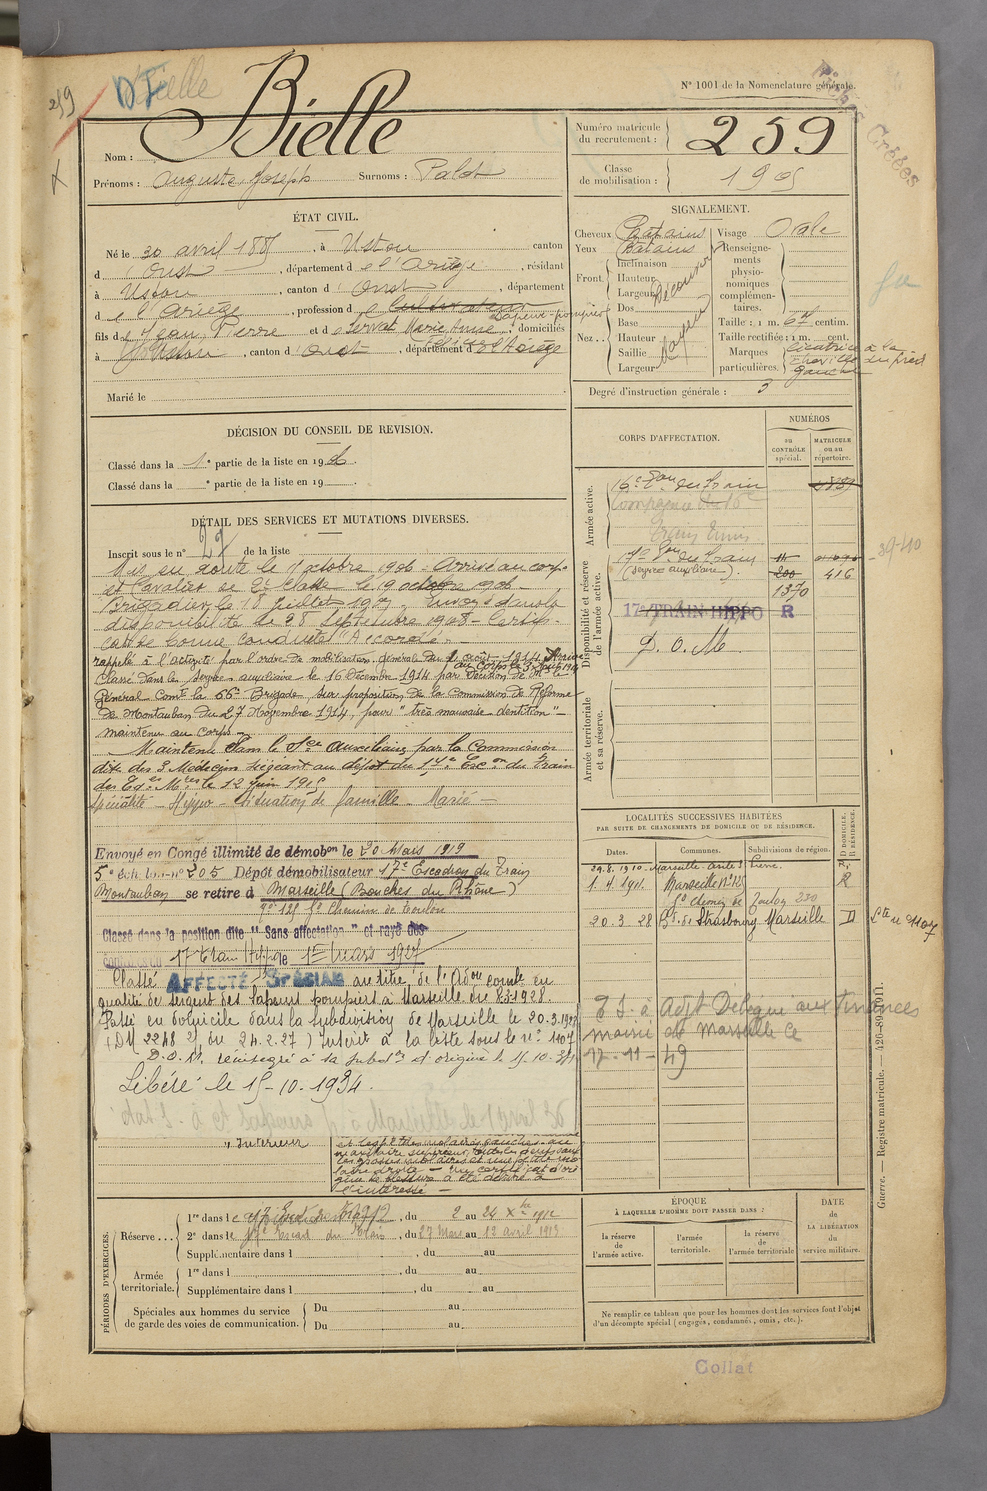 259
Bielle
N° 1001 de la Nomenclature générale.
Fiches Créées
Nom : Bielle
Prénoms : Auguste Joseph Surnoms : Palot
Numéro matricule du recrutement : 259
Classe de mobilisation : 1905
ÉTAT CIVIL.
Né le 30 avril 1885, à Ustou canton
d'Oust, département de l'Ariège, résidant
à Ustou, canton d'Oust, département
de l'Ariège, profession de Cultivateur
Sapeur-pompier
fils de Jean Pierre et de Servat Marie Anne, domiciliés
à Ustou, canton d'Oust, département de l'Ariège
Marié le
SIGNALEMENT.
Cheveux Chatains Visage Ovale
Yeux Chatains
Front. Inclinaison
Hauteur
Largeur
Découvert
Nez... Dos
Base
Hauteur
Saillie
Largeur
Moyen
Renseignements physionomiques complémentaires.
Taille : 1 m. 67 centim.
Taille rectifiée : 1 m. cent.
Marques particulières. Cicatrice à la cheville du pied gauche
Degré d'instruction générale : 3
DÉCISION DU CONSEIL DE REVISION.
Classé dans la 1e partie de la liste en 1906.
Classé dans la e partie de la liste en 19
DÉTAIL DES SERVICES ET MUTATIONS DIVERSES.
Inscrit sous le n° 27 de la liste
Mis en route le 7 octobre 1906 - Arrivé au corps
et Cavalier de 2e classe le 9 octobre 1906 -
Brigadier le 18 juillet 1907. Envoyé dans la
disponibilité le 28 Septembre 1908 - Certifi-
cat de bonne conduite "Accordé" -
rappelé à l'activité par l'ordre de mobilisation générale du 1 août 1914. Arrivé
au Corps le 3 août 1914
Classé dans le service auxiliaire le 16 Décembre 1914 par Décision de Mr le
Général Comt la 66e Brigade, sur proposition de la Commission de Réforme
de Montauban du 27 Novembre 1914, pour "très mauvaise dentition" -
maintenu au corps -
Maintenu dans le Sce Auxiliaire par la Commission
dite des 3 Médecins siégeant au dépôt du 17e Escon du Train
des Eqes Mres le 12 juin 1915
Spécialité - Hippo - Situation de famille - Marié -
Envoyé en Congé illimité de démobon le 20 Mars 1919
5e éch lon n° 205 Dépôt démobilisateur 17e Escadron du Train
Montauban se retire à Marseille (Bouches du Rhône)
Classé dans la position dite "Sans affectation" et rayé des
contrôles du 17 Train Hippo le 1er Mars 1927
Classé AFFECTÉ SPÉCIAL au titre de l'Adon comle en
qualité de sergent des Sapeurs pompiers à Marseille du 8.3.1928.
Passé en domicile dans la subdivision de Marseille le 20.3.1928
(DM 2248 du 24.2.27) Inscrit à la liste sous le n° 1107
D.O.M. réintégré à la subdon d'origine le 15-10-34
Libéré le 15-10-1934.
Intérieur
l'intéressé -
CORPS D'AFFECTATION.
NUMÉROS
au CONTRÔLE spécial.
MATRICULE ou au répertoire.
Armée active.
16e Eon du Train
Disponibilité et réserve de l'armée active.
17e Eon du Train
(service auxiliaire).
200
416
1370
39-40
17e TRAIN HIPPO R
D. O. M.
Armée territoriale et sa réserve.
LOCALITÉS SUCCESSIVES HABITÉES
PAR SUITE DE CHANGEMENTS DE DOMICILE OU DE RÉSIDENCE.
Dates. Communes. Subdivisions de région. D DOMICILE. R RÉSIDENCE.
29.8.1910 Marseille R
1.4.1911 Marseille R
20.3.28 Bd de Strasbourg Marseille D
Lte n° 1107
A.S. à Adjt Délégué aux Finances
mairie de Marseille le
17-11-49
PÉRIODES D'EXERCICES.
Réserve... 1re dans le 17e Escad du Train, du 2 au 24 Xbre 1912
2e dans le 17e Escad du Train, du 27 Mars au 12 avril 1913
Supplémentaire dans l, du au
Armée territoriale. 1re dans l, du au
Supplémentaire dans l, du au
Spéciales aux hommes du service de garde des voies de communication. Du au
Du au
ÉPOQUE
À LAQUELLE L'HOMME DOIT PASSER DANS :
la réserve de l'armée active.
l'armée territoriale.
la réserve de l'armée territoriale
DATE de LA LIBÉRATION du service militaire.
Ne remplir ce tableau que pour les hommes dont les services font l'objet
d'un décompte spécial (engagés, condamnés, omis, etc.).
Guerre. — Registre matricule. — 426-89-1911.
Collat